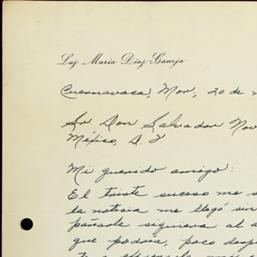 Luz María Díaz-Caneja
Cuernavaca, Mor, 20 de
Sr. Don Salvador Nov
México, D. F
Mi querido amigo:
El triste suceso me
la noticia me llegó sin
pasarle siquiera al
que podría, poco desp